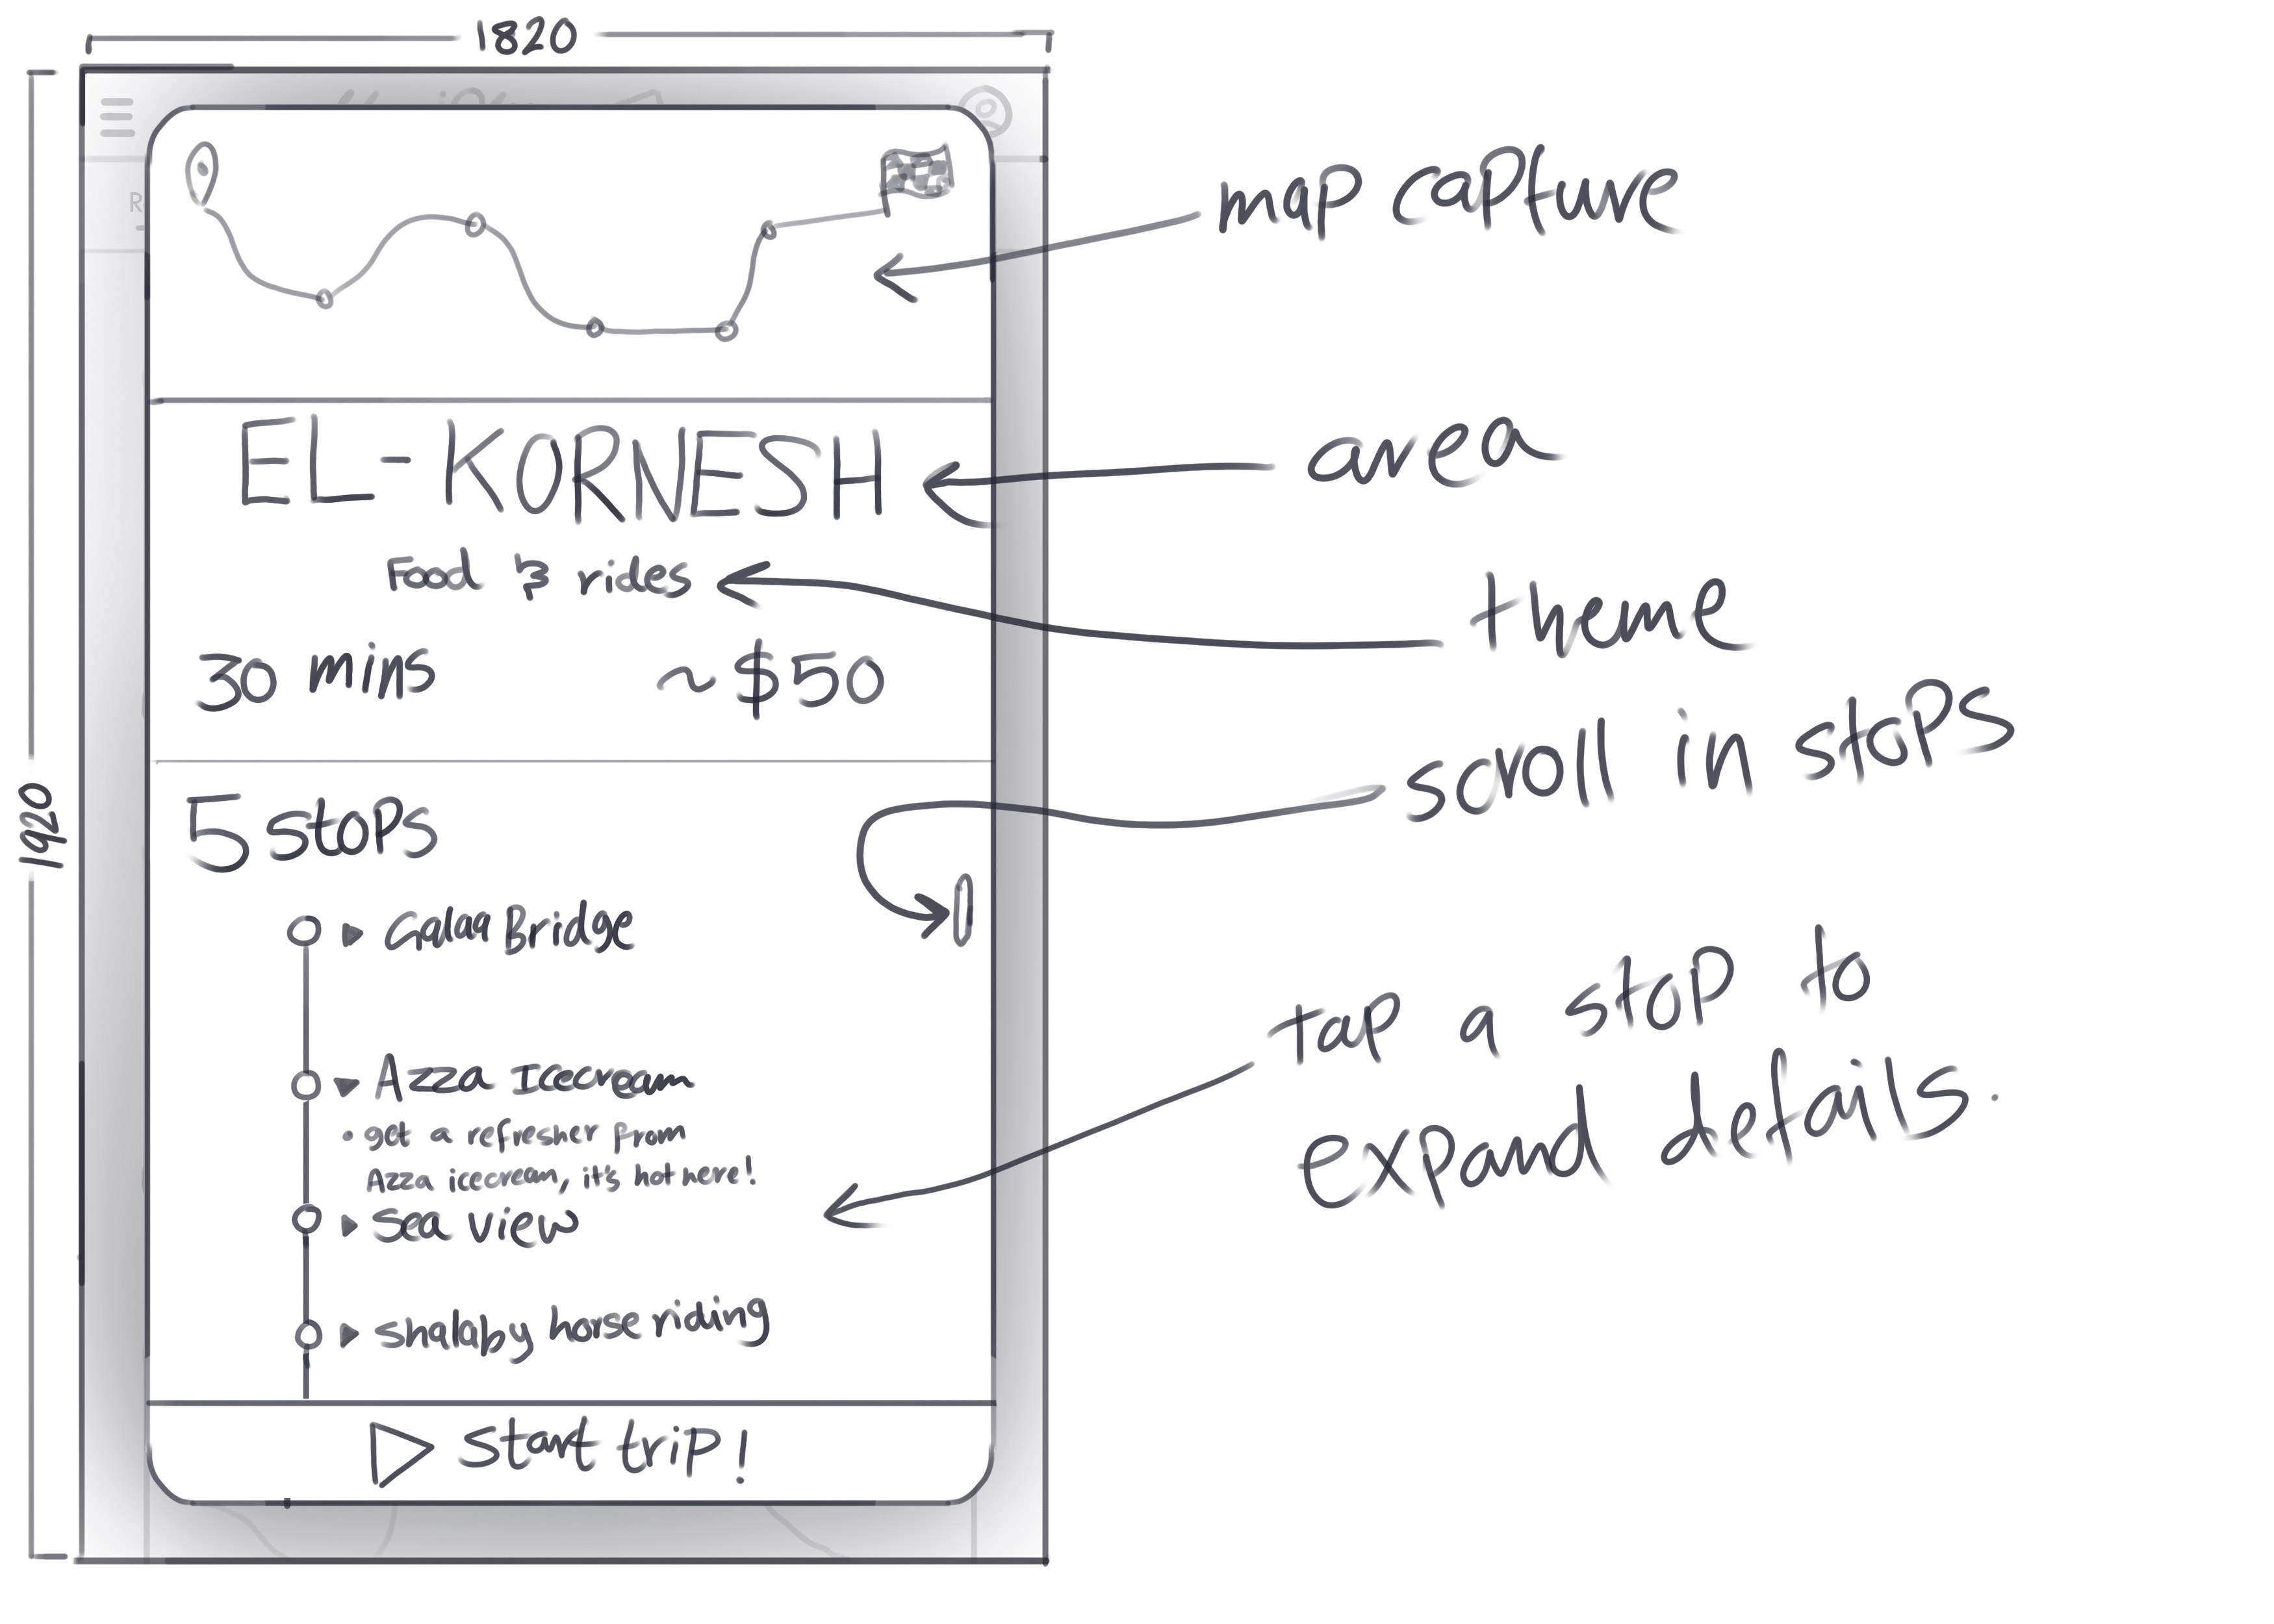 1820
1920
R
map capture
EL-KORNESH
area
Food & rides
theme
30 mins
~$50
scroll in stops
5 stops
Galaa Bridge
tap a stop to
expand details.
Azza Icecream
• get a refresher from
Azza icecream, it's hot here!
Sea view
shalaby horse riding
Start trip!